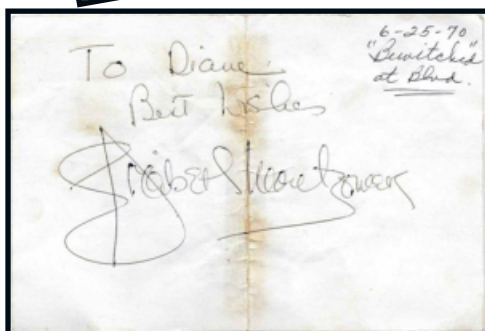 6-25-70
"Bewitched"
at Blvd.
To Diane
Best Wishes
Elizabeth Montgomery